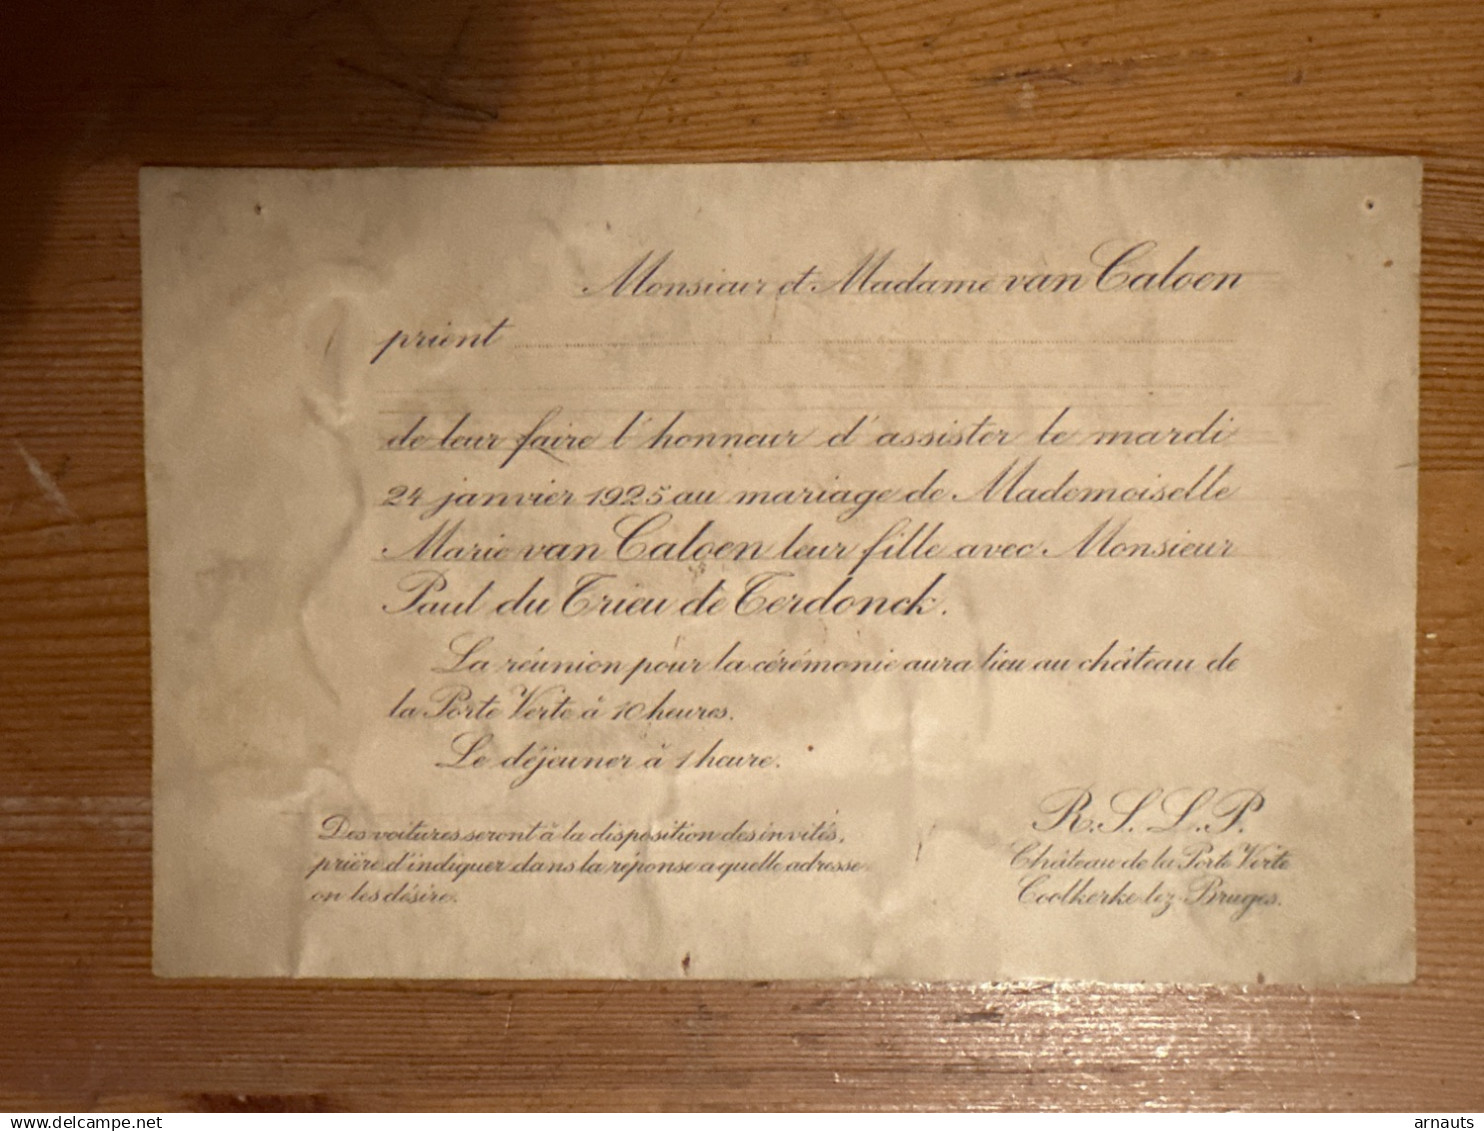 Monsieur et Madame van Caloen
prient
de leur faire l'honneur d'assister le mardi
24 janvier 1925 au mariage de Mademoiselle
Marie van Caloen leur fille avec Monsieur
Paul du Trieu de Terdonck.
La réunion pour la cérémonie aura lieu au château de
la Porte Verte à 10 heures.
Le déjeuner à 1 heure.
Des voitures seront à la disposition des invités,
prière d'indiquer dans la réponse a quelle adresse
on les désire.
R. S. L. P.
Château de la Porte Verte
Coolkerke lez Bruges.
www.delcampe.net
arnauts